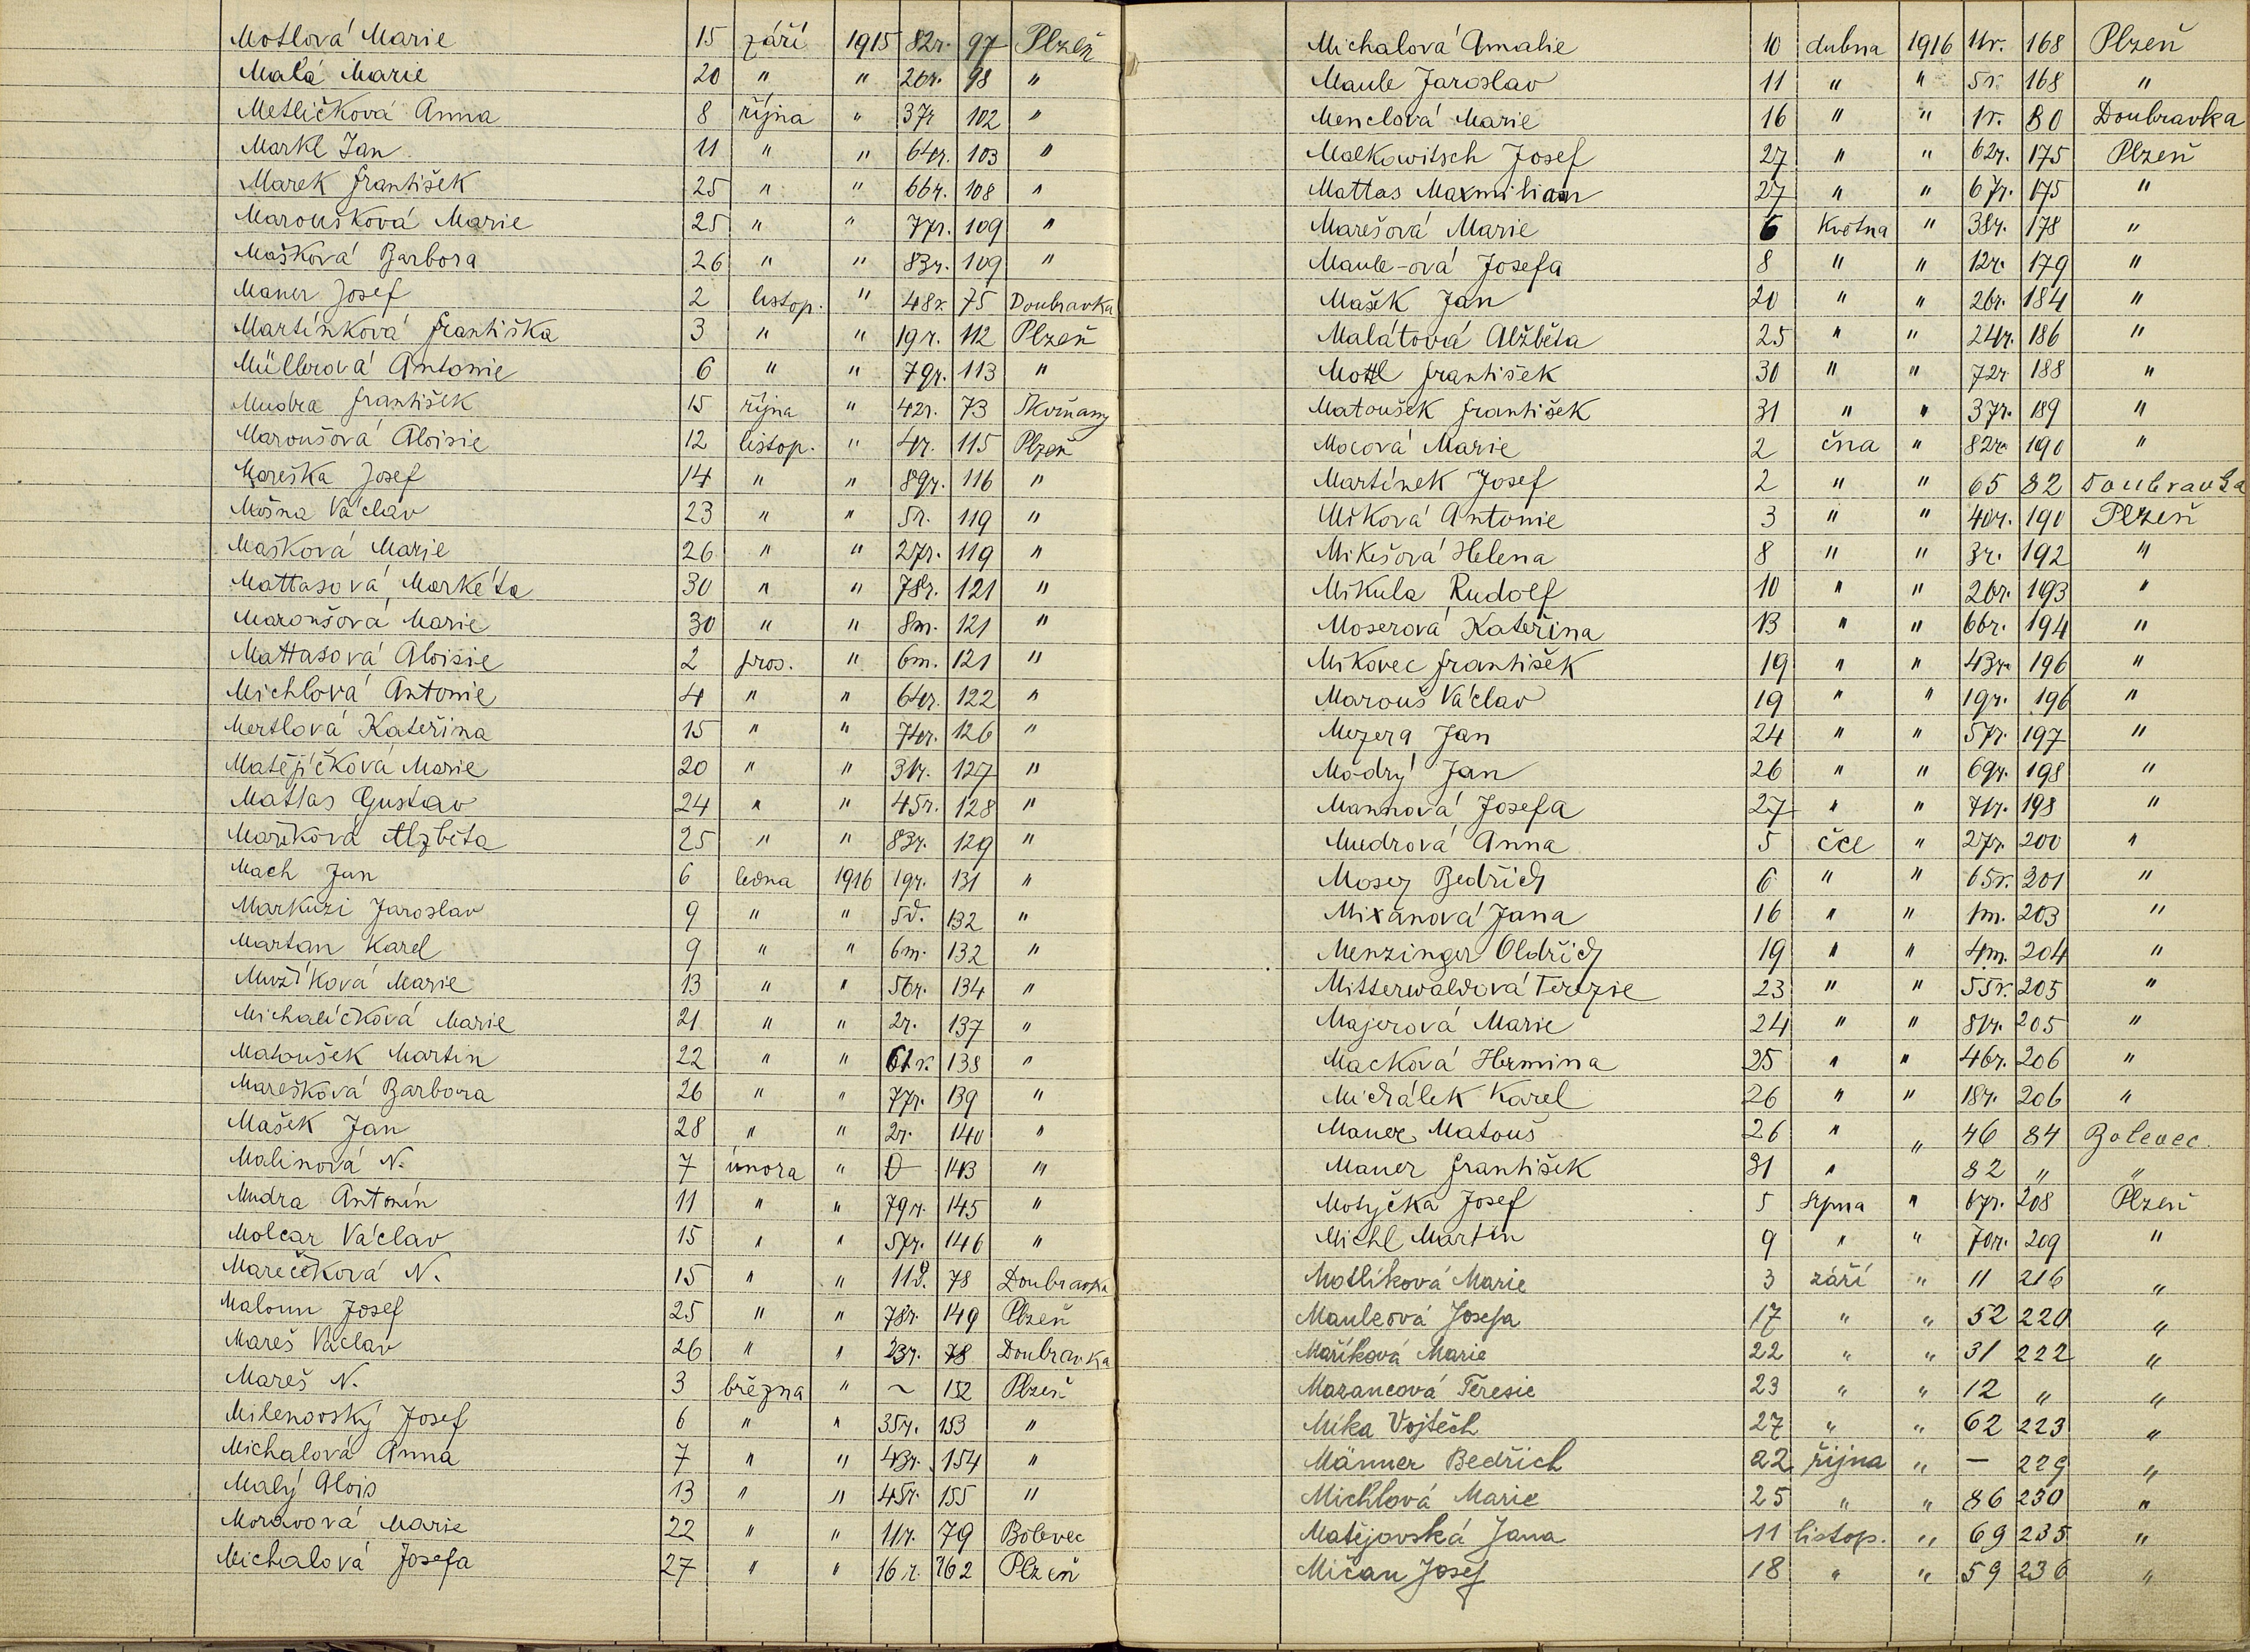 Motlová Marie 15 září 1915 82r. 97 Plzeň
Malá Marie 20 " " 26r. 98 "
Metličková Anna 8 října " 37r 102 "
Markl Jan 11 " " 64r. 103 "
Marek František 25 " " 66r. 108 "
Maroušková Marie 25 " " 77r. 109 "
Mašková Barbora 26 " " 83r. 109 "
Maner Josef 2 listop. " 48r. 75 Doubravka
Martínková Františka 3 " " 19r. 112 Plzeň
Müllerová Antonie 6 " " 79r. 113 "
Mudra František 15 října " 42r. 73 Skvrňany
Maroušová Aloisie 12 listop. " 4r. 115 Plzeň
Mareška Josef 14 " " 89r. 116 "
Mošna Václav 23 " " 5r. 119 "
Mašková Marie 26 " " 27r. 119 "
Mattasová Markéta 30 " " 78r. 121 "
Maroušová Marie 30 " " 8m. 121 "
Mattasová Aloisie 2 pros. " 6m. 121 "
Michlová Antonie 4 " " 64r. 122 "
Mertlová Kateřina 15 " " 74r. 126 "
Matějíčková Marie 20 " " 31r. 127 "
Mattas Gustav 24 " " 45r. 128 "
Maříková Alzběta 25 " " 83r. 129 "
Mach Jan 6 ledna 1916 19r. 131 "
Markuzi Jaroslav 9 " " 5d. 132 "
Martan Karel 9 " " 6m. 132 "
Muzíková Marie 13 " " 56r. 134 "
Michalíčková Marie 21 " " 2r. 137 "
Matoušek Martin 22 " " 61r. 138 "
Marešková Barbora 26 " " 77r. 139 "
Mašek Jan 28 " " 2r. 140 "
Malinová N. 7 února " 0 143 "
Mudra Antonín 11 " " 79r. 145 "
Molcar Václav 15 " " 57r. 146 "
Marečková N. 15 " " 11d. 78 Doubravka
Maloun Josef 25 " " 78r. 149 Plzeň
Mareš Václav 26 " " 23r. 78 Doubravka
Mareš N. 3 března " ~ 152 Plzeň
Milenovský Josef 6 " " 35r. 153 "
Michalová Anna 7 " " 43r. 154 "
Malý Alois 13 " " 45r. 155 "
Moravová Marie 22 " " 11r. 79 Bolevec
Michalová Josefa 27 " " 16r. 162 Plzeň
Michalová Amalie 10 dubna 1916 11r. 168 Plzeň
Maule Jaroslav 11 " " 5r. 168 "
Menclová Marie 16 " " 1r. 80 Doubravka
Malkowitsch Josef 27 " " 62r. 175 Plzeň
Mattas Maxmilian 27 " " 67r. 175 "
Marešová Marie 6 května " 38r. 178 "
Maule-ová Josefa 8 " " 12r. 179 "
Mašek Jan 20 " " 26r. 184 "
Malátová Alžběta 25 " " 24r. 186 "
Mottl František 30 " " 72r 188 "
Matoušek František 31 " " 37r. 189 "
Mocová Marie 2 čna " 82r. 190 "
Martínek Josef 2 " " 65 82 Doubravka
Miková Antonie 3 " " 40r. 190 Plzeň
Mikešová Helena 8 " " 3r. 192 "
Mikula Rudolf 10 " " 26r. 193 "
Moserová Kateřina 13 " " 66r. 194 "
Mikovec František 19 " " 43r. 196 "
Marouš Václav 19 " " 19r. 196 "
Mezera Jan 24 " " 57r. 197 "
Modrý Jan 26 " " 69r. 198 "
Mannová Josefa 27 " " 71r. 198 "
Mudrová Anna 5 čce " 27r. 200 "
Moser Bedřich 6 " " 65r. 201 "
Mixanová Jana 16 " " 1m. 203 "
Menzinger Oldřich 19 " " 4m. 204 "
Mitterwaldová Terezie 23 " " 55r. 205 "
Majerová Marie 24 " " 81r. 205 "
Macková Hermina 25 " " 46r. 206 "
Michálek Karel 26 " " 18r. 206 "
Maner Matouš 26 " " 46 84 Bolevec.
Maner František 31 " 82 " "
Motyčka Josef 5 srpna " 67r. 208 Plzeň
Michl Martin 9 " " 70r. 209 "
Motlíková Marie 3 září " 11 216 "
Mauleová Josefa 17 " " 52 220 "
Maříková Marie 22 " " 31 222 "
Mazancová Teresie 23 " " 12 " "
Míka Vojtěch 27 " " 62 223 "
Männer Bedřich 22 října " - 229 "
Michlová Marie 25 " " 86 230 "
Matějovská Jana 11 listop. " 69 235 "
Mičan Josef 18 " " 59 236 "